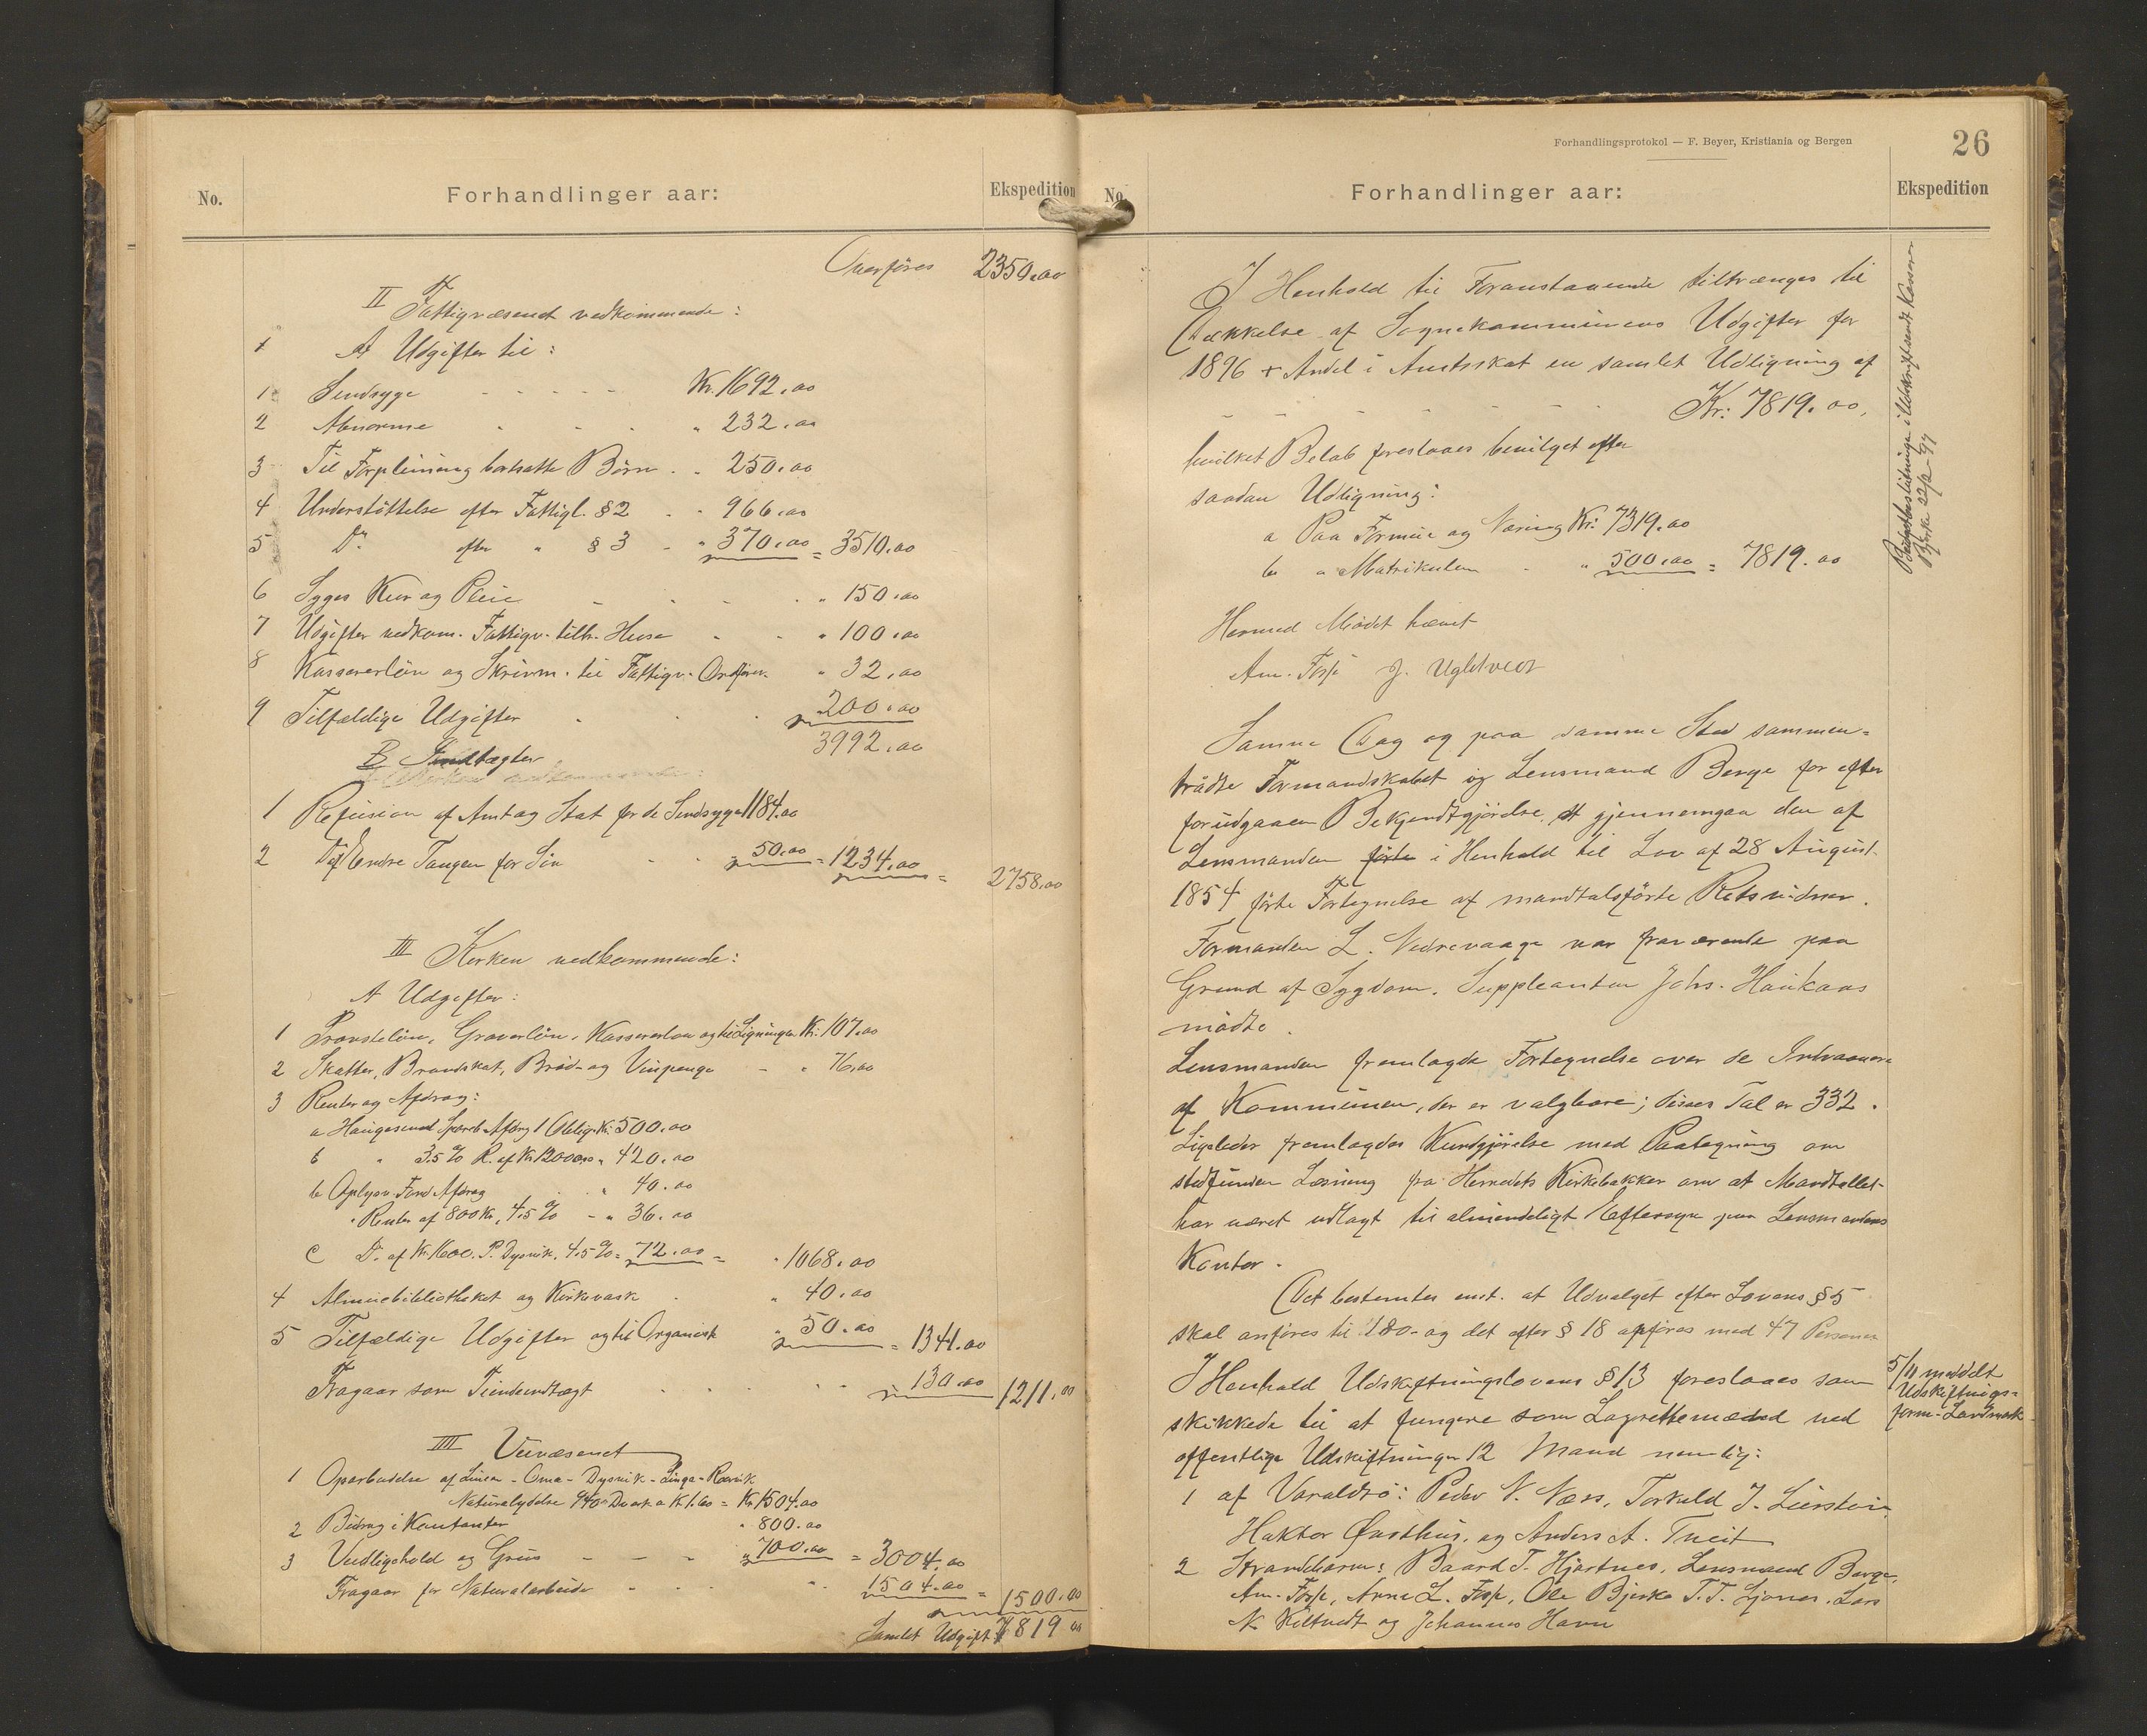 No. Forhandlinger aar: Ekspedition
Overføres 2350.00
II Fattigvæsenet vedkommende:
A Udgifter til:
1 Sindsyge - - - - Kr. 1692.00
2 Abnorme " 232.00
3 Til Forpleining bortsatte Børn " 250.00
4 Understøttelse efter Fattigl. § 2 " 966.00
5 Do. efter " § 3 " 370.00 = 3510.00
6 Syges Kur og Pleie " 150.00
7 Udgifter vedkom. Fattigv. tilh. Huse " 100.00
8 Kassererløn og Skrivm. til Fattigv. Ordfører " 32.00
9 Tilfældige Udgifter 200.00
3992.00
B Indtægter
1 Refusion af Amt og Stat for de Sindsyge 1184.00
2 Do af Endre Tangen for Sin 50.00 = 1234.00 =
2758.00
III Kirken vedkommende:
A Udgifter:
1 Provsteløn, Graverløn, Kassererløn og til Ligningen Kr. 107.00
2 Skatter, Brandskat, Brød- og Vinpenge - " 76.00
3 Renter og Afdrag:
a Haugesund Spareb. Afdrg 1 Oblig. Kr. 500.00
b " 3.5 % R. af Kr 12000.00 " 420.00
b Oplysn. Fond Afdrag " 40.00
" Renter af 800 Kr, 4.5 % - " 36.00
c Do. af Kr. 1600. P. Dysvik, 4.5 % = 72.00 = " 1068.00
4 Almuebibliotheket og Kirkevask " 40.00
5 Tilfældige Udgifter og til Organist " 50.00 = 1341.00
Fragaar som Tiendeindtægt 130.00 1211.00
IIII Veivæsenet
1 Oparbeidelse af Linien - Oma - Dysvik - Linga - Røvik
Naturalydelse 940 Dverk a Kr. 1.60 = Kr. 1504.00
2 Bidrag i Kontanter " 800.00
3 Vedligehold og Grus - - - " 700.00 = 3004.00
Fragaar for Naturalarbeide 1504.00 = 1500.00
Samlet Udgift: 7819 00
Forhandlingsprotokol — F. Beyer, Kristiania og Bergen
26
No. Forhandlinger aar: Ekspedition
I Henhold til Foranstaaende tiltrænges til
Dækkelse af Sognekommunens Udgifter for
1896 + Andel i Amtsskat en samlet Udligning af
- - - - - - Kr: 7819.00,
hvilket Beløb foreslaaes bevilget efter
saadan Udligning:
a Paa Formue og Næring Kr: 7319.00
b " Matrikulen " 500.00 = 7819.00
Hermed Mødet hævet
Am. Fosse J. Ugletveit
Samme Dag og paa samme Sted sammen-
traadte Formandskabet og Lensmand Berge for efter
forudgaaen Bekjendtgjørelse at gjennemgaa den af
Lensmanden førte i Henhold til Lov af 28 August
1854 førte Fortegnelse af mandtalsførte Retsvidner.
Formanden L. Nedrevaage var fraværende paa
Grund af Sygdom. Suppleanten Johs. Haukaas
mødte.
Lensmanden fremlagde Fortegnelse over de Indvaanere
af Kommunen, der er valgbare; disses Tal er 332.
Ligeledes fremlagdes Kundgjørelse med Paategning om
stedfunden Læsning fra Herredets Kirkebakker om at Mandtallet
har været udlagt til almindeligt Eftersyn paa Lensmandens
Kontor.
Det bestemtes enst. at Udvalget efter Lovens § 5
skal anføres til 180 og det efter § 18 opføres med 47 Personer
I Henhold Udskiftningslovens § 13 foreslaaes som
skikkede til at fungere som Lagrettemænd ved
offentlige Udskiftninger 12 Mand nemlig:
1 af Varaldsø: Peder N. Næss, Torkeld J. Lierstein,
Haktor Øvsthus, og Anders A. Tveit
2 Strandebarm: Baard T. Hjartnes, Lensmand Berge,
Am. Fosse, Arne L. Fosse, Ole Bjerke T.T. Ljones, Lars
N. Kiltvedt og Johannes Havn
Budgetbeslutninge i Udskrift sendt Kasserer
Bjerke 22/2 - 97
5/11 meddelt
Udskiftnings-
form. Landmark